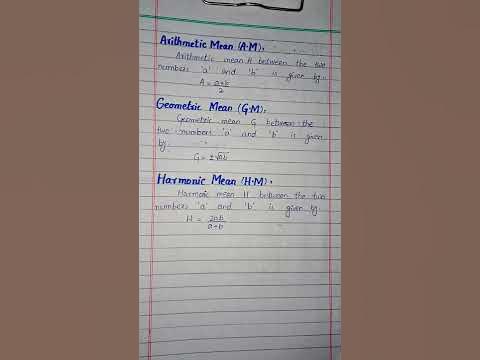 Arithmetic Mean (A.M):
Arithmetic mean A between the two
numbers 'a' and 'b' is given by:
A = a+b/2
Geometric Mean (G.M):
Geometric mean G between the
two numbers 'a' and 'b' is given
by:
G = ±√ab
Harmonic Mean (H.M):
Harmonic mean H between the two
numbers 'a' and 'b' is given by:
H = 2ab/a+b